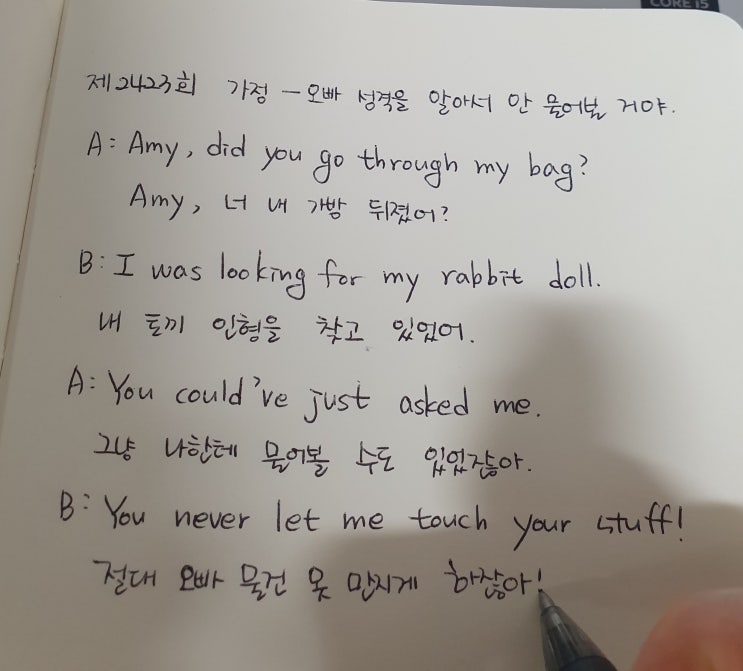 CORE i5
제2423회 가정 – 오빠 성격을 알아서 안 물어볼 거야.
A: Amy, did you go through my bag?
Amy, 너 내 가방 뒤졌어?
B: I was looking for my rabbit doll.
내 토끼 인형을 찾고 있었어.
A: You could've just asked me.
그냥 나한테 물어볼 수도 있었잖아.
B: You never let me touch your stuff!
절대 오빠 물건 못 만지게 하잖아!